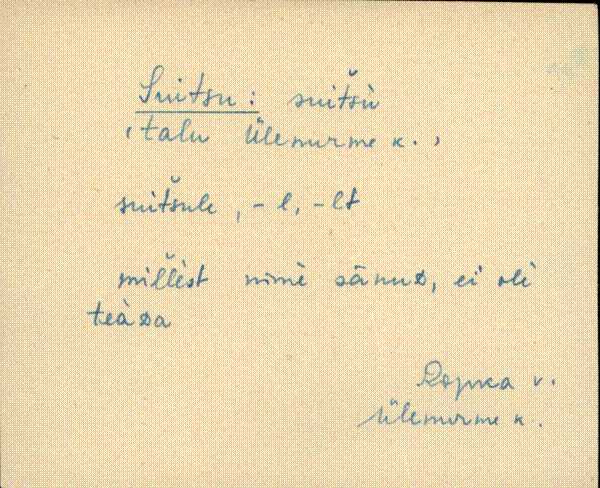 Suitsu: suitšù
(talu Ülenurme k.,
suitšule, -l, -lt
millèst nimè sānud, ei olè
teàda
Ropka v.
Ülenurme k.